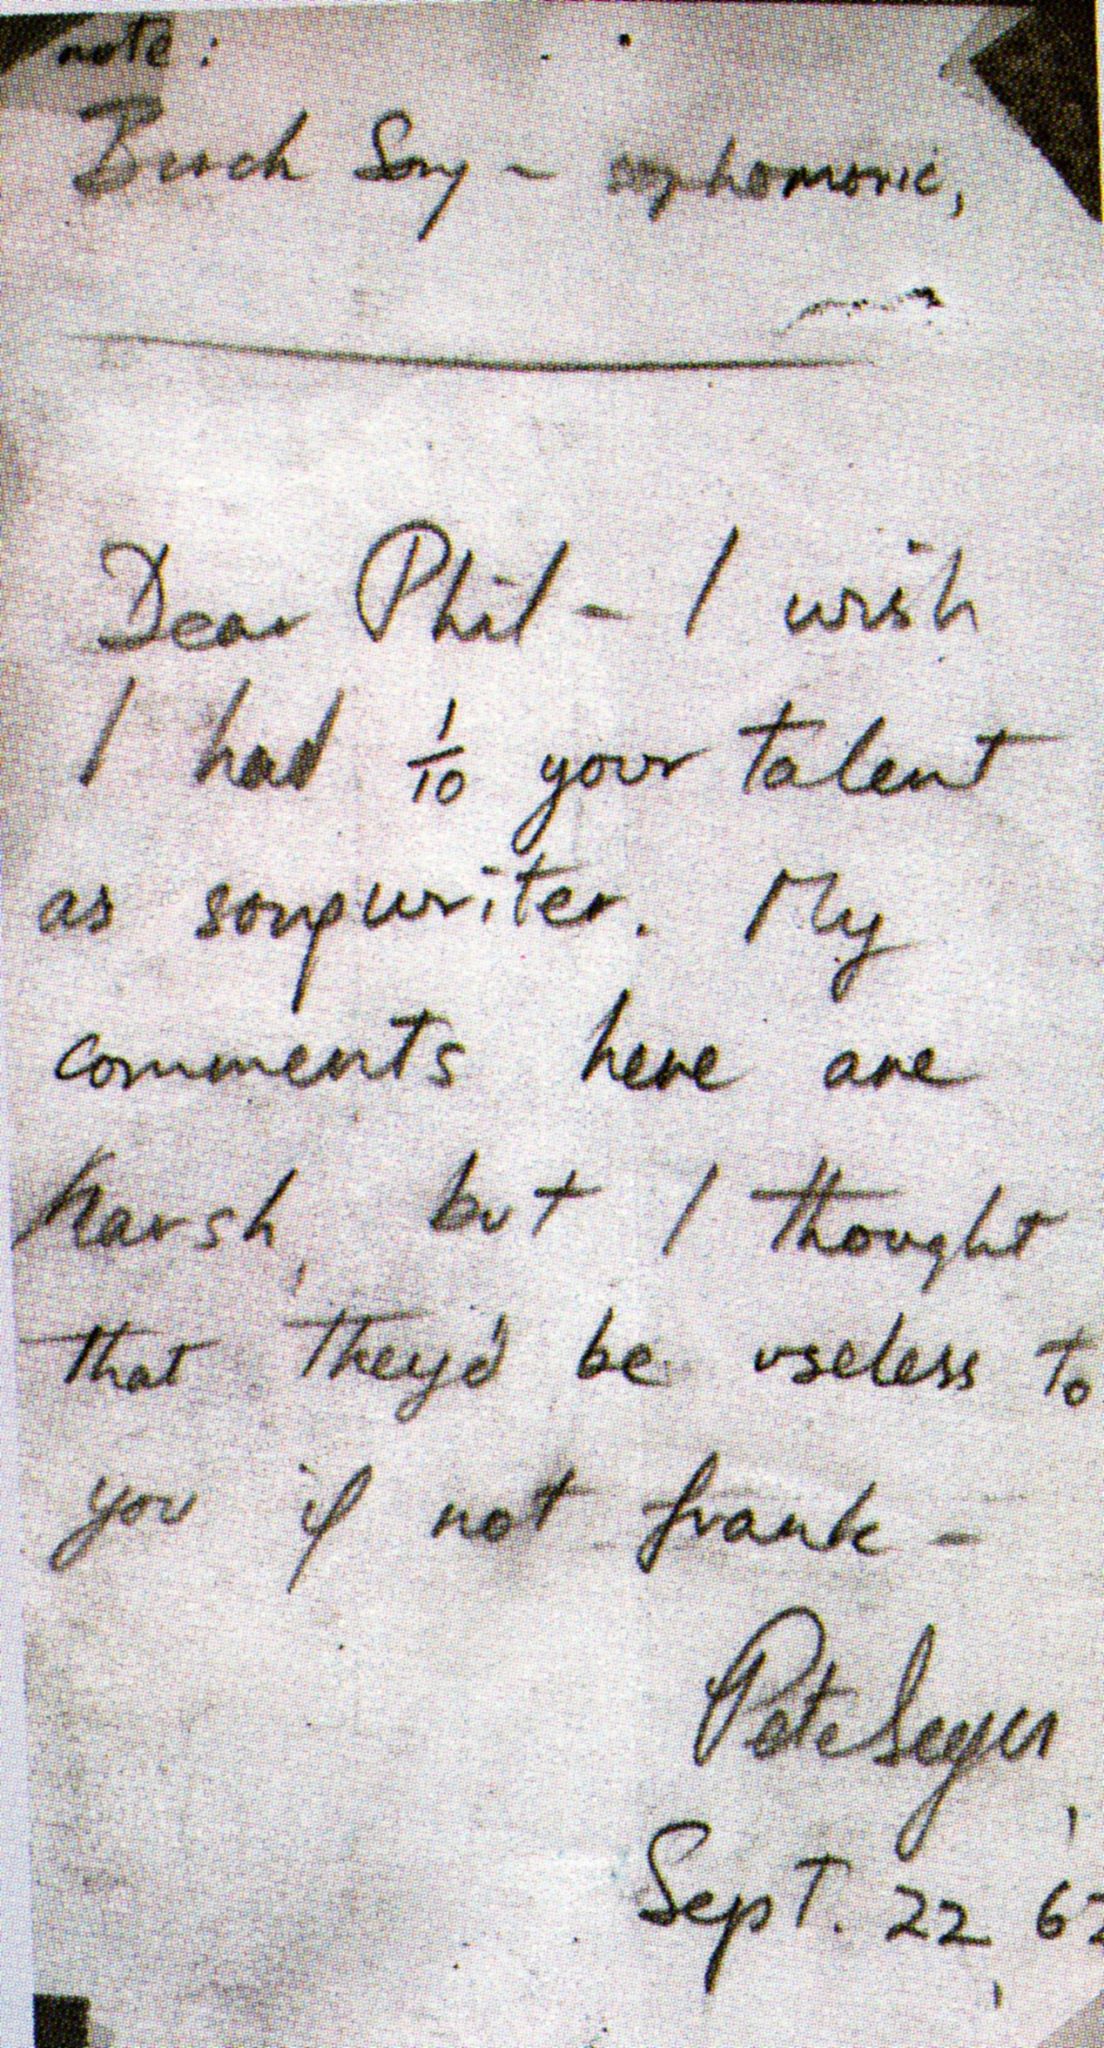 note:
Birch Song - sophomoric,
Dear Phil - I wish
I had 1/10 your talent
as songwriter. My
comments here are
harsh, but I thought
that they'd be useless to
you if not frank -
Pete Seeger
Sept. 22, '62